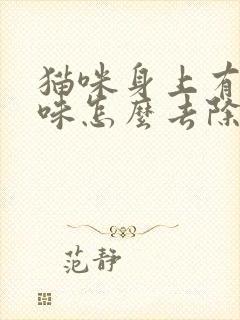 猫咪身上有
味怎麼去除
范静